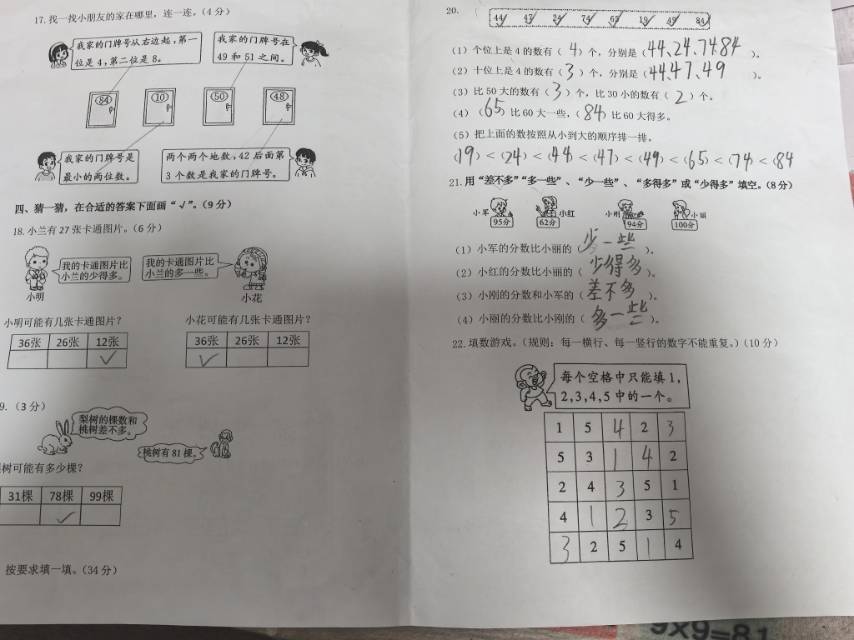 17.找一找小朋友的家在哪里，连一连。(4分)
我家的门牌号从右边起，第一位是4，第二位是8。
我家的门牌号在49和51之间。
84 10 50 48
我家的门牌号是最小的两位数。
两个两个地数，42后面第3个数是我家的门牌号。
四、猜一猜，在合适的答案下面画“✓”。(9分)
18.小兰有27张卡通图片。(6分)
我的卡通图片比小兰的少得多。
我的卡通图片比小兰的多一些。
小明 小花
小明可能有几张卡通图片？ 小花可能有几张卡通图片？
36张 26张 12张 36张 26张 12张
✓ ✓
9.(3分)
梨树的棵数和桃树差不多。
桃树有81棵。
树可能有多少棵？
31棵 78棵 99棵
✓
按要求填一填。(34分)
20.
44 47 24 74 65 19 49 84
(1)个位上是4的数有(4)个，分别是(44.24.7484)。
(2)十位上是4的数有(3)个，分别是(44.47、49)。
(3)比50大的数有(3)个，比30小的数有(2)个。
(4)(65)比60大一些，(84)比60大得多。
(5)把上面的数按照从小到大的顺序排一排。
(19)<(24)<(44)<(47)<(49)<(65)<(74)<(84
21.用“差不多”“多一些”、“少一些”、“多得多”或“少得多”填空。(8分)
小军 95分 62分 小红 小刚 94分 100分 小丽
(1)小军的分数比小丽的(少一些)。
(2)小红的分数比小丽的(少得多)。
(3)小刚的分数和小军的(差不多)。
(4)小丽的分数比小刚的(多一些)。
22.填数游戏。(规则：每一横行、每一竖行的数字不能重复。)(10分)
每个空格中只能填1，
2,3,4,5中的一个。
1 5 4 2 3
5 3 1 4 2
2 4 3 5 1
4 1 2 3 5
3 2 5 1 4
9×9=81